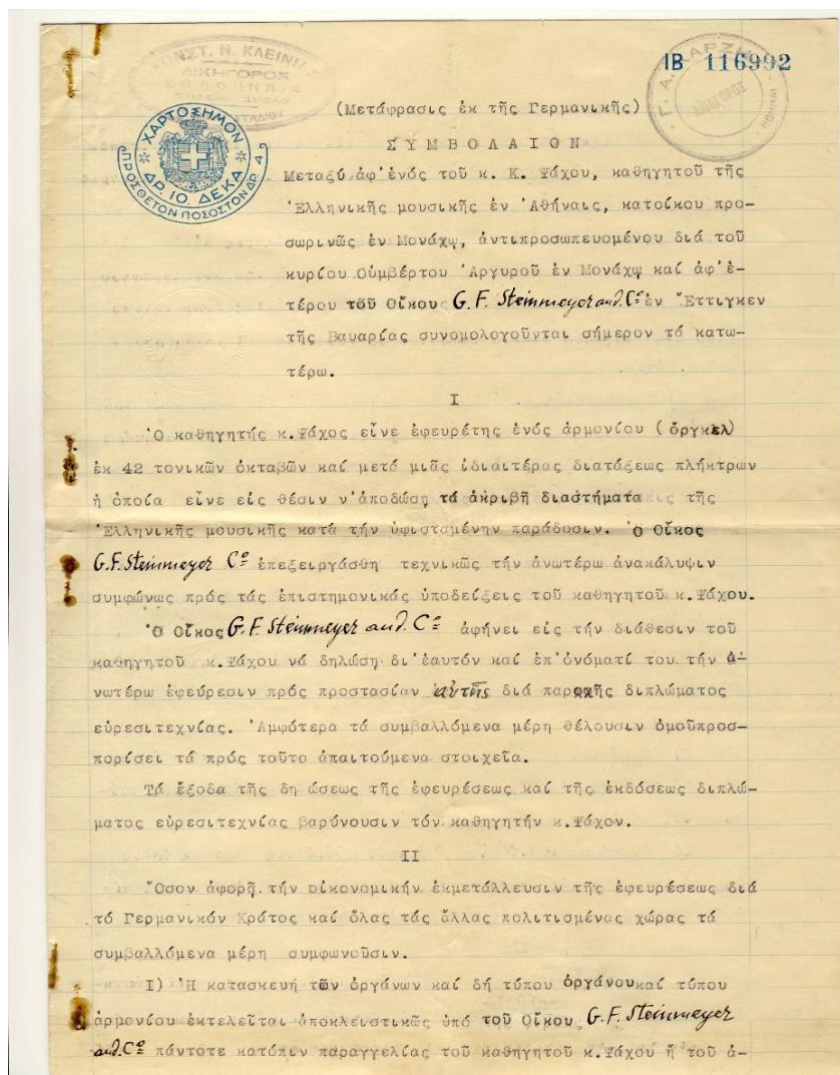 ΚΩΝΣΤ. Ν. ΚΛΕΙΝ
ΔΙΚΗΓΟΡΟΣ
ΙΒ 116992
ΔΙΚΗΓΟΡΟΣ
ΧΑΡΤΟΣΗΜΟΝ
ΔΡ. 10 ΔΕΚΑ
ΠΡΟΣΘΕΤΟΝ ΠΟΣΟΣΤΟΝ ΔΡ. 4
(Μετάφρασις ἐκ τῆς Γερμανικῆς)
ΣΥΜΒΟΛΑΙΟΝ
Μεταξύ ἀφ'ἑνός τοῦ κ. Κ. Ψάχου, καθηγητοῦ τῆς
Ἑλληνικῆς μουσικῆς ἐν Ἀθήναις, κατοίκου προ-
σωρινῶς ἐν Μονάχῳ, ἀντιπροσωπευομένου διά τοῦ
κυρίου Οὑμβέρτου Ἀργυροῦ ἐν Μονάχῳ καί ἀφ'ἑ-
τέρου τοῦ Οἴκου G. F. Steinmeyer and. Cº ἐν Ἔττιγκεν
τῆς Βαυαρίας συνομολογοῦνται σήμερον τά κατω-
τέρω.
I
Ὁ καθηγητής κ.Ψάχος εἶνε ἐφευρέτης ἑνός ἁρμονίου (ὄργκελ)
ἐκ 42 τονικῶν ὀκταβῶν καί μετά μιᾶς ἰδιαιτέρας διατάξεως πλήκτρων
ἡ ὁποία εἶνε εἰς θέσιν ν'ἀποδώσῃ τά ἀκριβῆ διαστήματα τῆς
Ἑλληνικῆς μουσικῆς κατά τήν ὑφισταμένην παράδοσιν. Ὁ Οἶκος
G. F. Steinmeyer Cº ἐπεξειργάσθη τεχνικῶς τήν ἀνωτέρω ἀνακάλυψιν
συμφώνως πρός τάς ἐπιστημονικάς ὑποδείξεις τοῦ καθηγητοῦ κ.Ψάχου.
Ὁ Οἶκος G. F. Steinmeyer and. Cº ἀφήνει εἰς τήν διάθεσιν τοῦ
καθηγητοῦ κ.Ψάχου νά δηλώσῃ δι'ἑαυτόν καί ἐπ'ὀνόματί του τήν ἀ-
νωτέρω ἐφεύρεσιν πρός προστασίαν αὐτῆς διά παροχῆς διπλώματος
εὑρεσιτεχνίας. Ἀμφότερα τά συμβαλλόμενα μέρη θέλουσιν ὁμοῦπροσ-
πορίσει τά πρός τοῦτο ἀπαιτούμενα στοιχεῖα.
Τά ἔξοδα τῆς δη ώσεως τῆς ἐφευρέσεως καί τῆς ἐκδόσεως διπλώ-
ματος εὑρεσιτεχνίας βαρύνουσιν τόν καθηγητήν κ.Ψάχον.
II
Ὅσον ἀφορᾷ τήν οἰκονομικήν ἐκμετάλλευσιν τῆς ἐφευρέσεως διά
τό Γερμανικόν Κράτος καί ὅλας τάς ἄλλας πολιτισμένας χώρας τά
συμβαλλόμενα μέρη συμφωνοῦσιν.
I) Ἡ κατασκευή τῶν ὀργάνων καί δή τύπου ὀργάνου καί τύπου
ἁρμονίου ἐκτελεῖται ἀποκλειστικῶς ὑπό τοῦ Οἴκου G. F. Steinmeyer
and. Cº πάντοτε κατόπιν παραγγελίας τοῦ καθηγητοῦ κ.Ψάχου ἤ τοῦ ἀ-